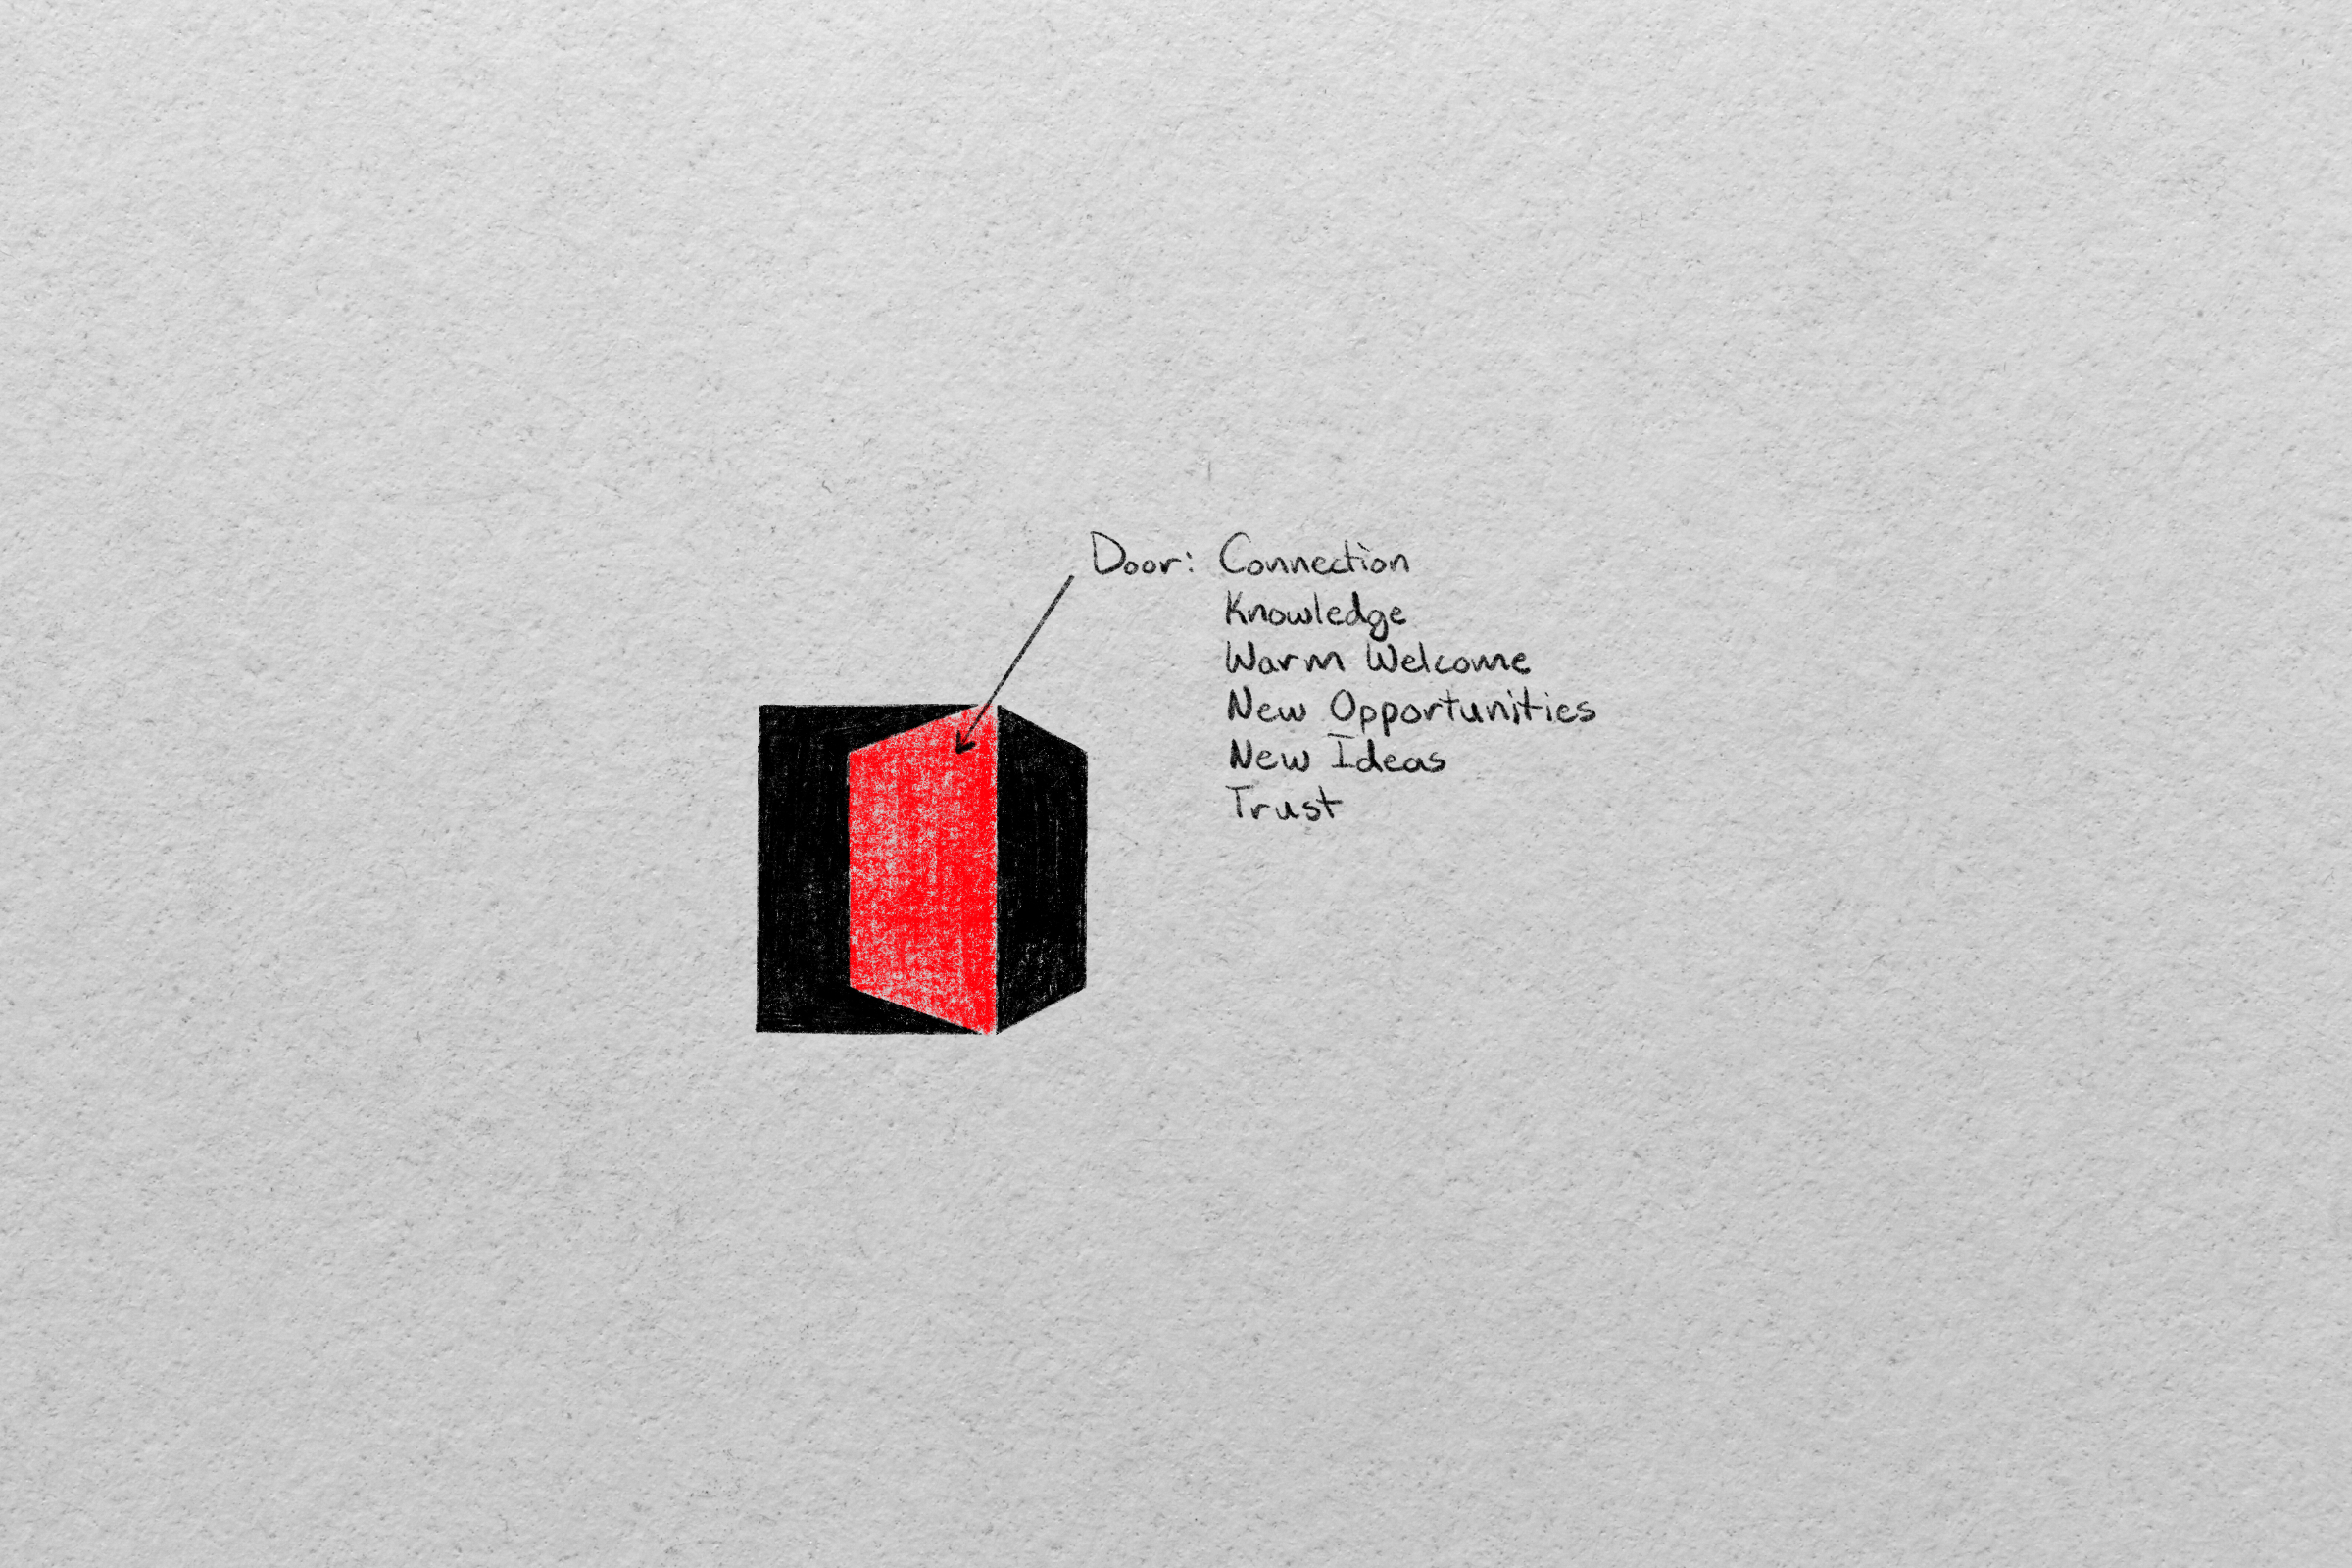 Door: Connection
Knowledge
Warm Welcome
New Opportunities
New Ideas
Trust